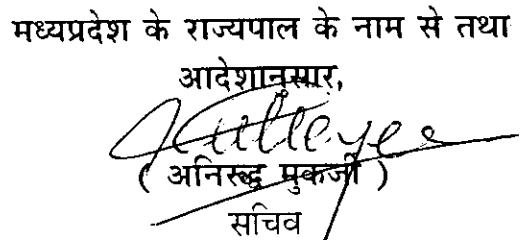 मध्यप्रदेश के राज्यपाल के नाम से तथा
आदेशानुसार,
( अनिरूद्ध मुकर्जी )
सचिव